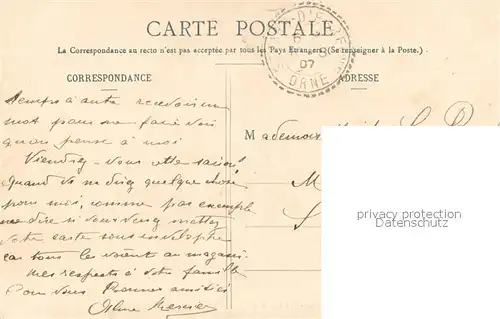 CARTE POSTALE
La Correspondance au recto n'est pas acceptée par tous les Pays Etrangers (Se renseigner à la Poste.)
CORRESPONDANCE
ADRESSE
07
ORNE
temps à autre recevoir un
mot pour me faire voir
qu'on pense à moi
Viendrez-vous cette saison?
Quand vs me direz quelque chose
pour moi, comme par exemple
me dire si vous venez mettez
votre carte sous enveloppe
car tous les voient au magasin.
Mes respects à votre famille
Pour vous Bonnes amitiés
Mademoi
M
privacy protection
Removed